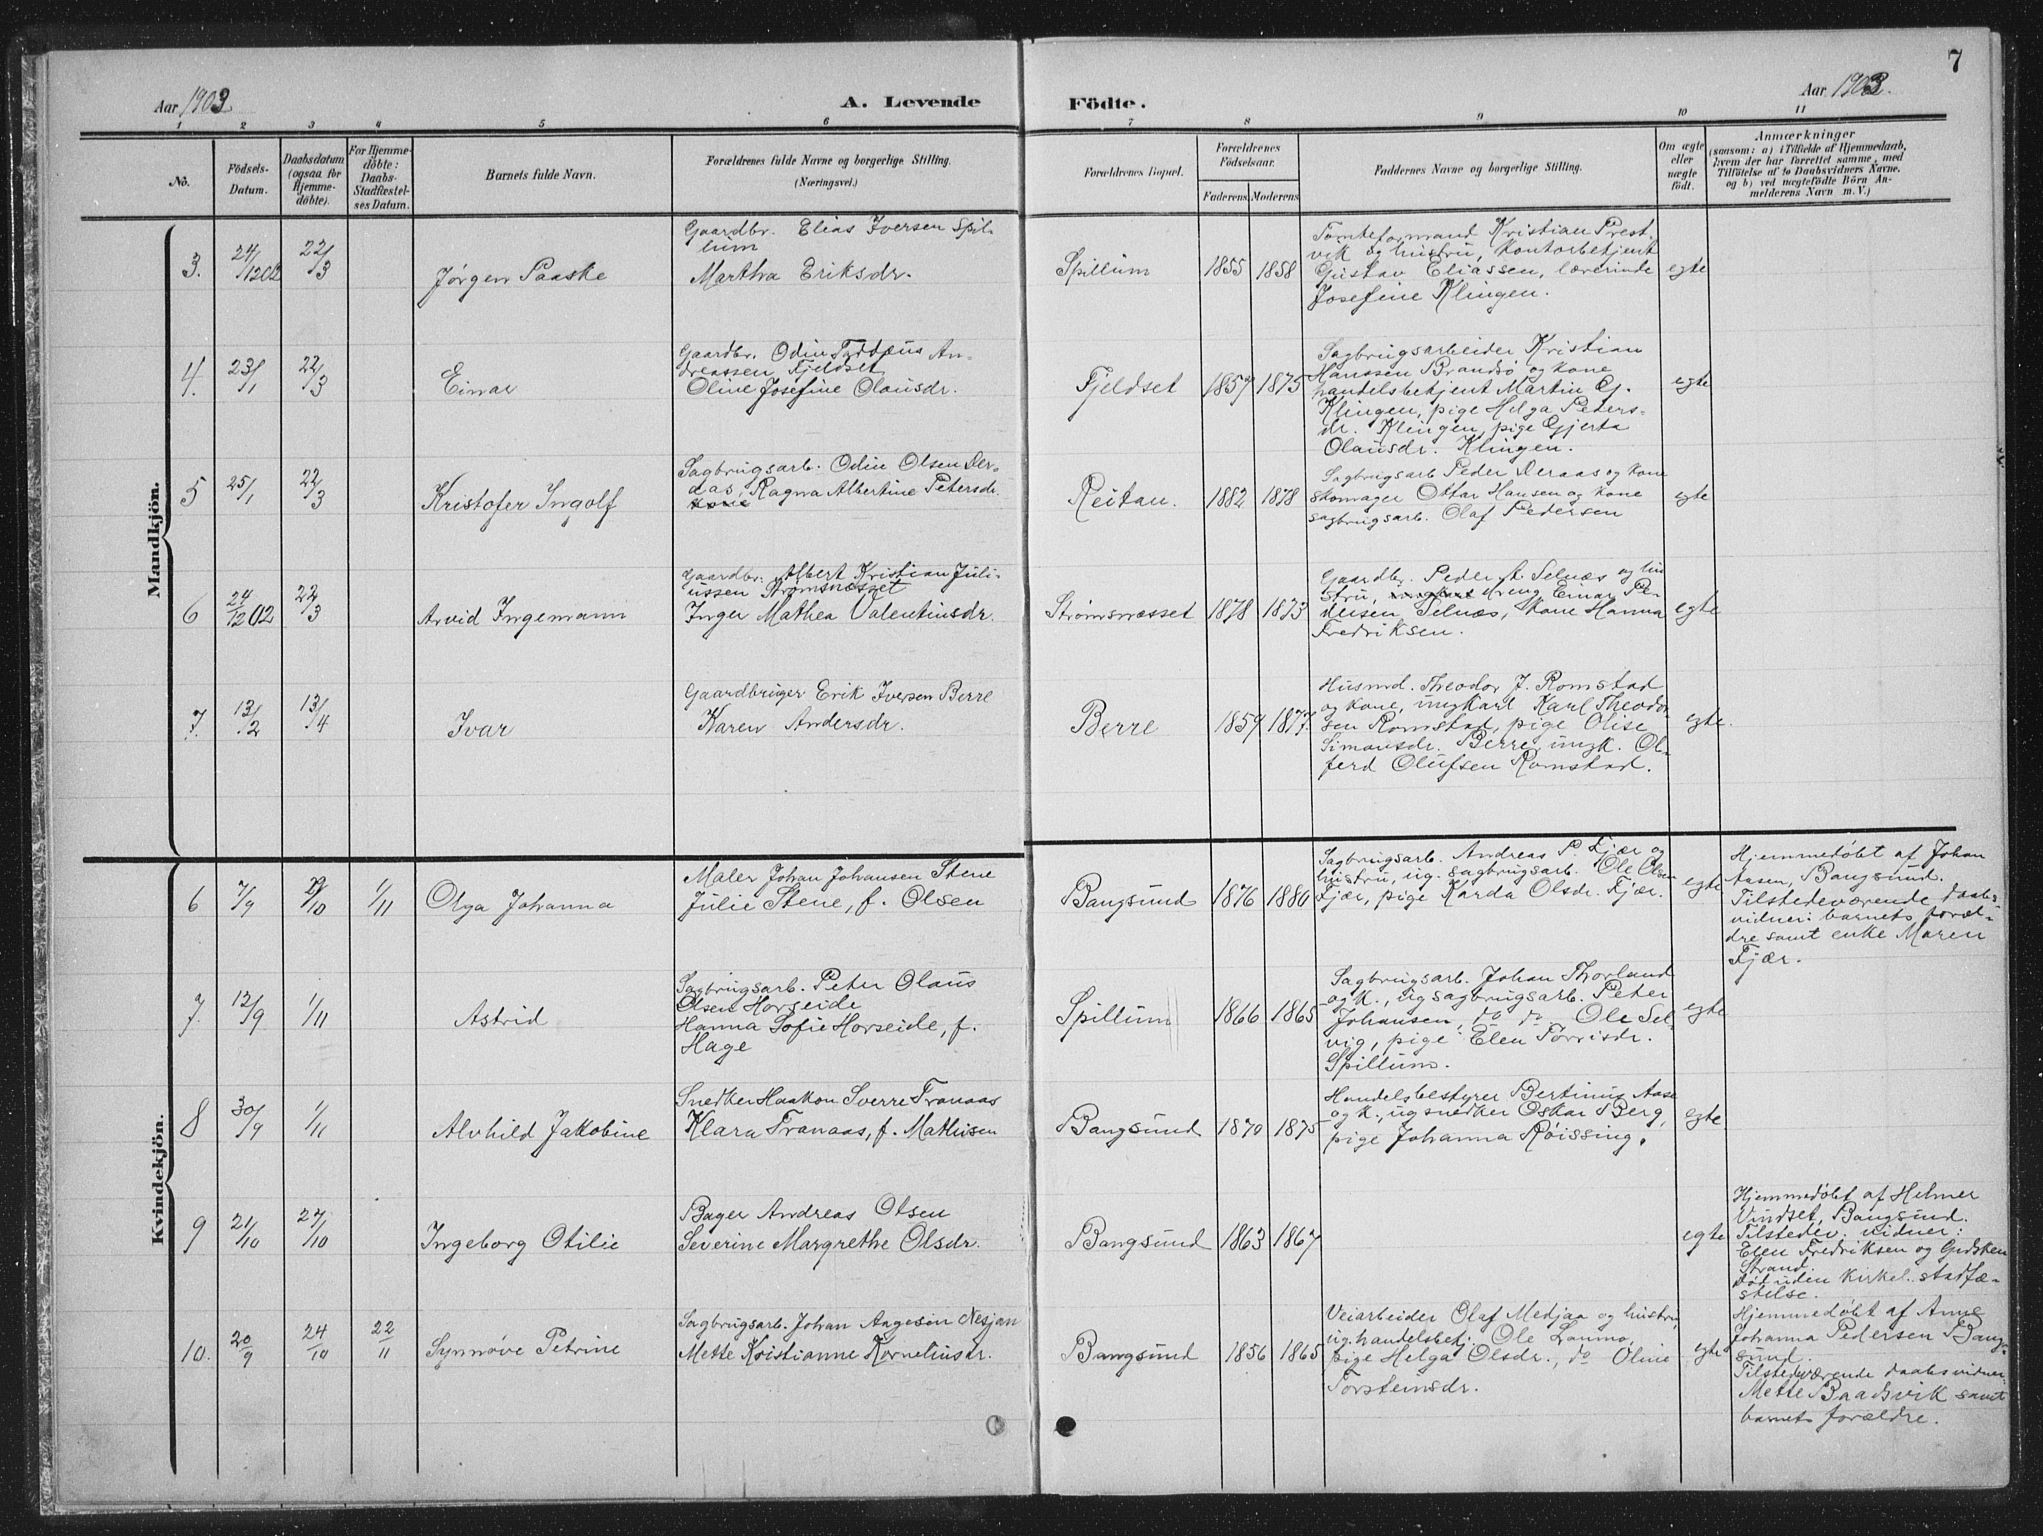 7
Aar 1903.
A. Levende
Födte.
Aar 1903.
1 2 3 4 5 6 7 8 9 10 11
No.
Födsels-
Datum.
Daabsdatum
(ogsaa for
Hjemme-
döbte).
For Hjemme-
döbte:
Daabs-
Stadfæstel-
ses Datum.
Barnets fulde Navn.
Forældrenes fulde Navne og borgerlige Stilling.
(Næringsvei.)
Forældrenes Bopæl.
Forældrenes
Födselsaar.
Faderens. Moderens.
Faddernes Navne og borgerlige Stilling.
Om ægte
eller
uægte
födt.
Anmærkninger
(saasom: a) i Tilfælde af Hjemmedaab,
hvem der har forrettet samme, med
Tilföielse af to Daabsvidners Navne.
og b) ved uægtefödte Börn An-
melderens Navn m. V.)
Mandkjön.
3. 24/12 02 22/3
Jørgen Paaske
Gaardbr. Elias Iversen Spil-
lum
Martha Eriksdr.
Spillum
1855 1858
Tomteformand Kristian Prest-
vik og hustru, kontorbetjent
Gustav Eliassen, lærerinde
Josefine Klingen.
egte
4. 23/1 22/3
Einar
Gaardbr. Odin Taddæus An-
dreassen Fjeldset
Oline Josefine Olausdr.
Fjeldset
1859 1875
Sagbrugsarbeider Kristian
Hanssen Brandsø og kone
handelsbetjent Martin G.
Klingen, pige Helga Peders-
dr. Klingen, pige Gjerta
Olausdr. Klingen.
egte
5 25/1 22/3
Kristofer Ingolf
Sagbrugsarb. Odin Olsen Der-
das, Ragna Albertine Petersdr.
kone
Reitan.
1882 1878
Sagbrugsarb Peder Deraas og kone
skomager Ottar Hansen og kone
sagbrugsarb. Olaf Pedersen
egte
6 24/12 02 22/3
Arvid Ingemann
Gaardbr. Albert Kristian Juli-
ussen Strømsnæsset
Inger Mathea Valentinsdr.
Strømsnæsset
1878 1873
Gaardbr. Peder A Selnæs og hu
stru, dreng Einar Pe-
dersen Selnæs, kone Hanna
Fredriksen.
egte
7. 13/2 13/4
Ivar
Gaardbruger Erik Iversen Berre
Karen Andersdr.
Berre
1859 1877.
Husmd. Theodor J. Romstad
og kone, ungkarl Karl Theodor
sen Romstad, pige Olise
Simonsdr. Berre, ungk. Ol-
ferd Olufsen Romstad.
egte.
Kvindekjön.
6 7/9 /10 1/11
Olga Johanna
Maler Johan Johansen Stene
Julie Stene, f. Olsen
Bangsund
1876 1880
Sagbrugsarb. Andreas P. Fjær og
hustru, ug. sagbrugsarb. Ole Olsen
Fjær, pige Karda Olsdr. Fjær.
egte
Hjemmedøbt af Johan
Aasen, Bangsund.
Tilstedeværende daabs-
vidner: barnets foræl-
dre samt enke Maren
Fjær.
7. 12/9 1/11
Astrid
Sagbrugsarb. Peter Olaus
Olsen Horseide
Hanna Sofie Horseide, f.
Hage
Spillum
1866 1865
Sagbrugsarb. Johan Thorland
og k., ug sagbrugsarb. Peter
Johansen, do do Ole Sel-
vig, pige Elen Torrisdr.
Spillum.
egte
8 30/9 1/11
Alvhild Jakobine
Snedker Haakon Sverre Franaas
Klara Franaas, f. Mathisen
Bangsund
1870 1875
Handelsbestyrer Bertinus Aase
og k., ug snedker Oskar Berg,
pige Johanna Røissing.
egte
9 21/10 27/10
Ingeborg Otilie
Bager Andreas Olsen
Severine Margrethe Olsdr.
Bangsund
1863 1867
egte
Hjemmedøbt af Helmer
Vindset, Bangsund.
Tilstedev. vidner:
Elen Fredriksen og Gidsken
Strand.
Død uden kirkel. stadfæ-
stelse.
10. 20/9 24/10 22/11
Synnøve Petrine
Sagbrugsarb. Johan Aagesen Nesjan
Mette Kristianne Korneliusdr.
Bangsund
1856 1865
Veiarbeider Olaf Medjaa og hustru,
ug. handelsbetj. Ole Laumo,
pige Helga Olsdr., do Oline
Torsteinsdr.
egte
Hjemmedøbt af Anne
Johanna Pedersen Bang-
sund.
Tilstedeværende daabsvidner:
Mette Baadsvik samt
barnets forældre.